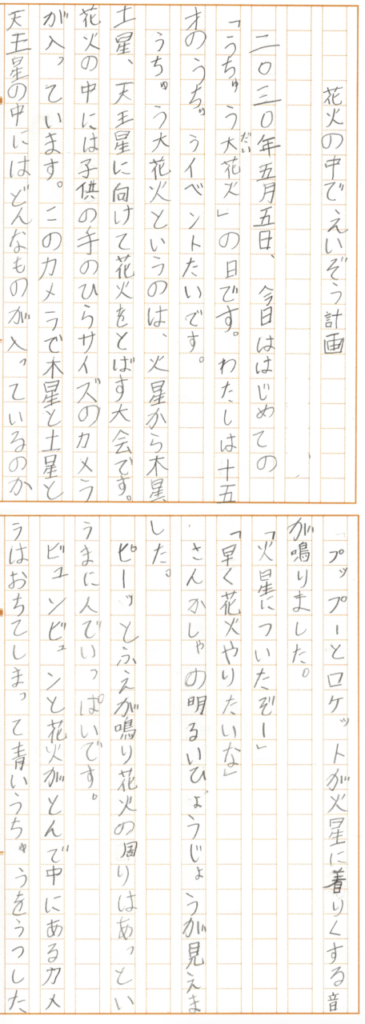 花火の中で えいぞう計画
二〇三〇年五月五日、今日ははじめての
「うちゅう大花火」の日です。わたしは十五
だい
才のうちゅうイベントたいです。
うちゅう大花火というのは、火星から木星
土星、天王星に向けて花火をとばす大会です。
花火の中には子供の手のひらサイズのカメラ
が入っています。このカメラで木星と土星と
天王星の中にはどんなものが入っているのか
プップーとロケットが火星に着りくする音
が鳴りました。
「火星についたぞー」
「早く花火やりたいな」
さんかしゃの明るいひょうじょうが見えま
した。
ピーッとふえが鳴り花火の周りはあっとい
うまに人でいっぱいです。
ビュンビュンと花火がとんで中にあるカメ
ラはおちてしまって青いうちゅうをうつした